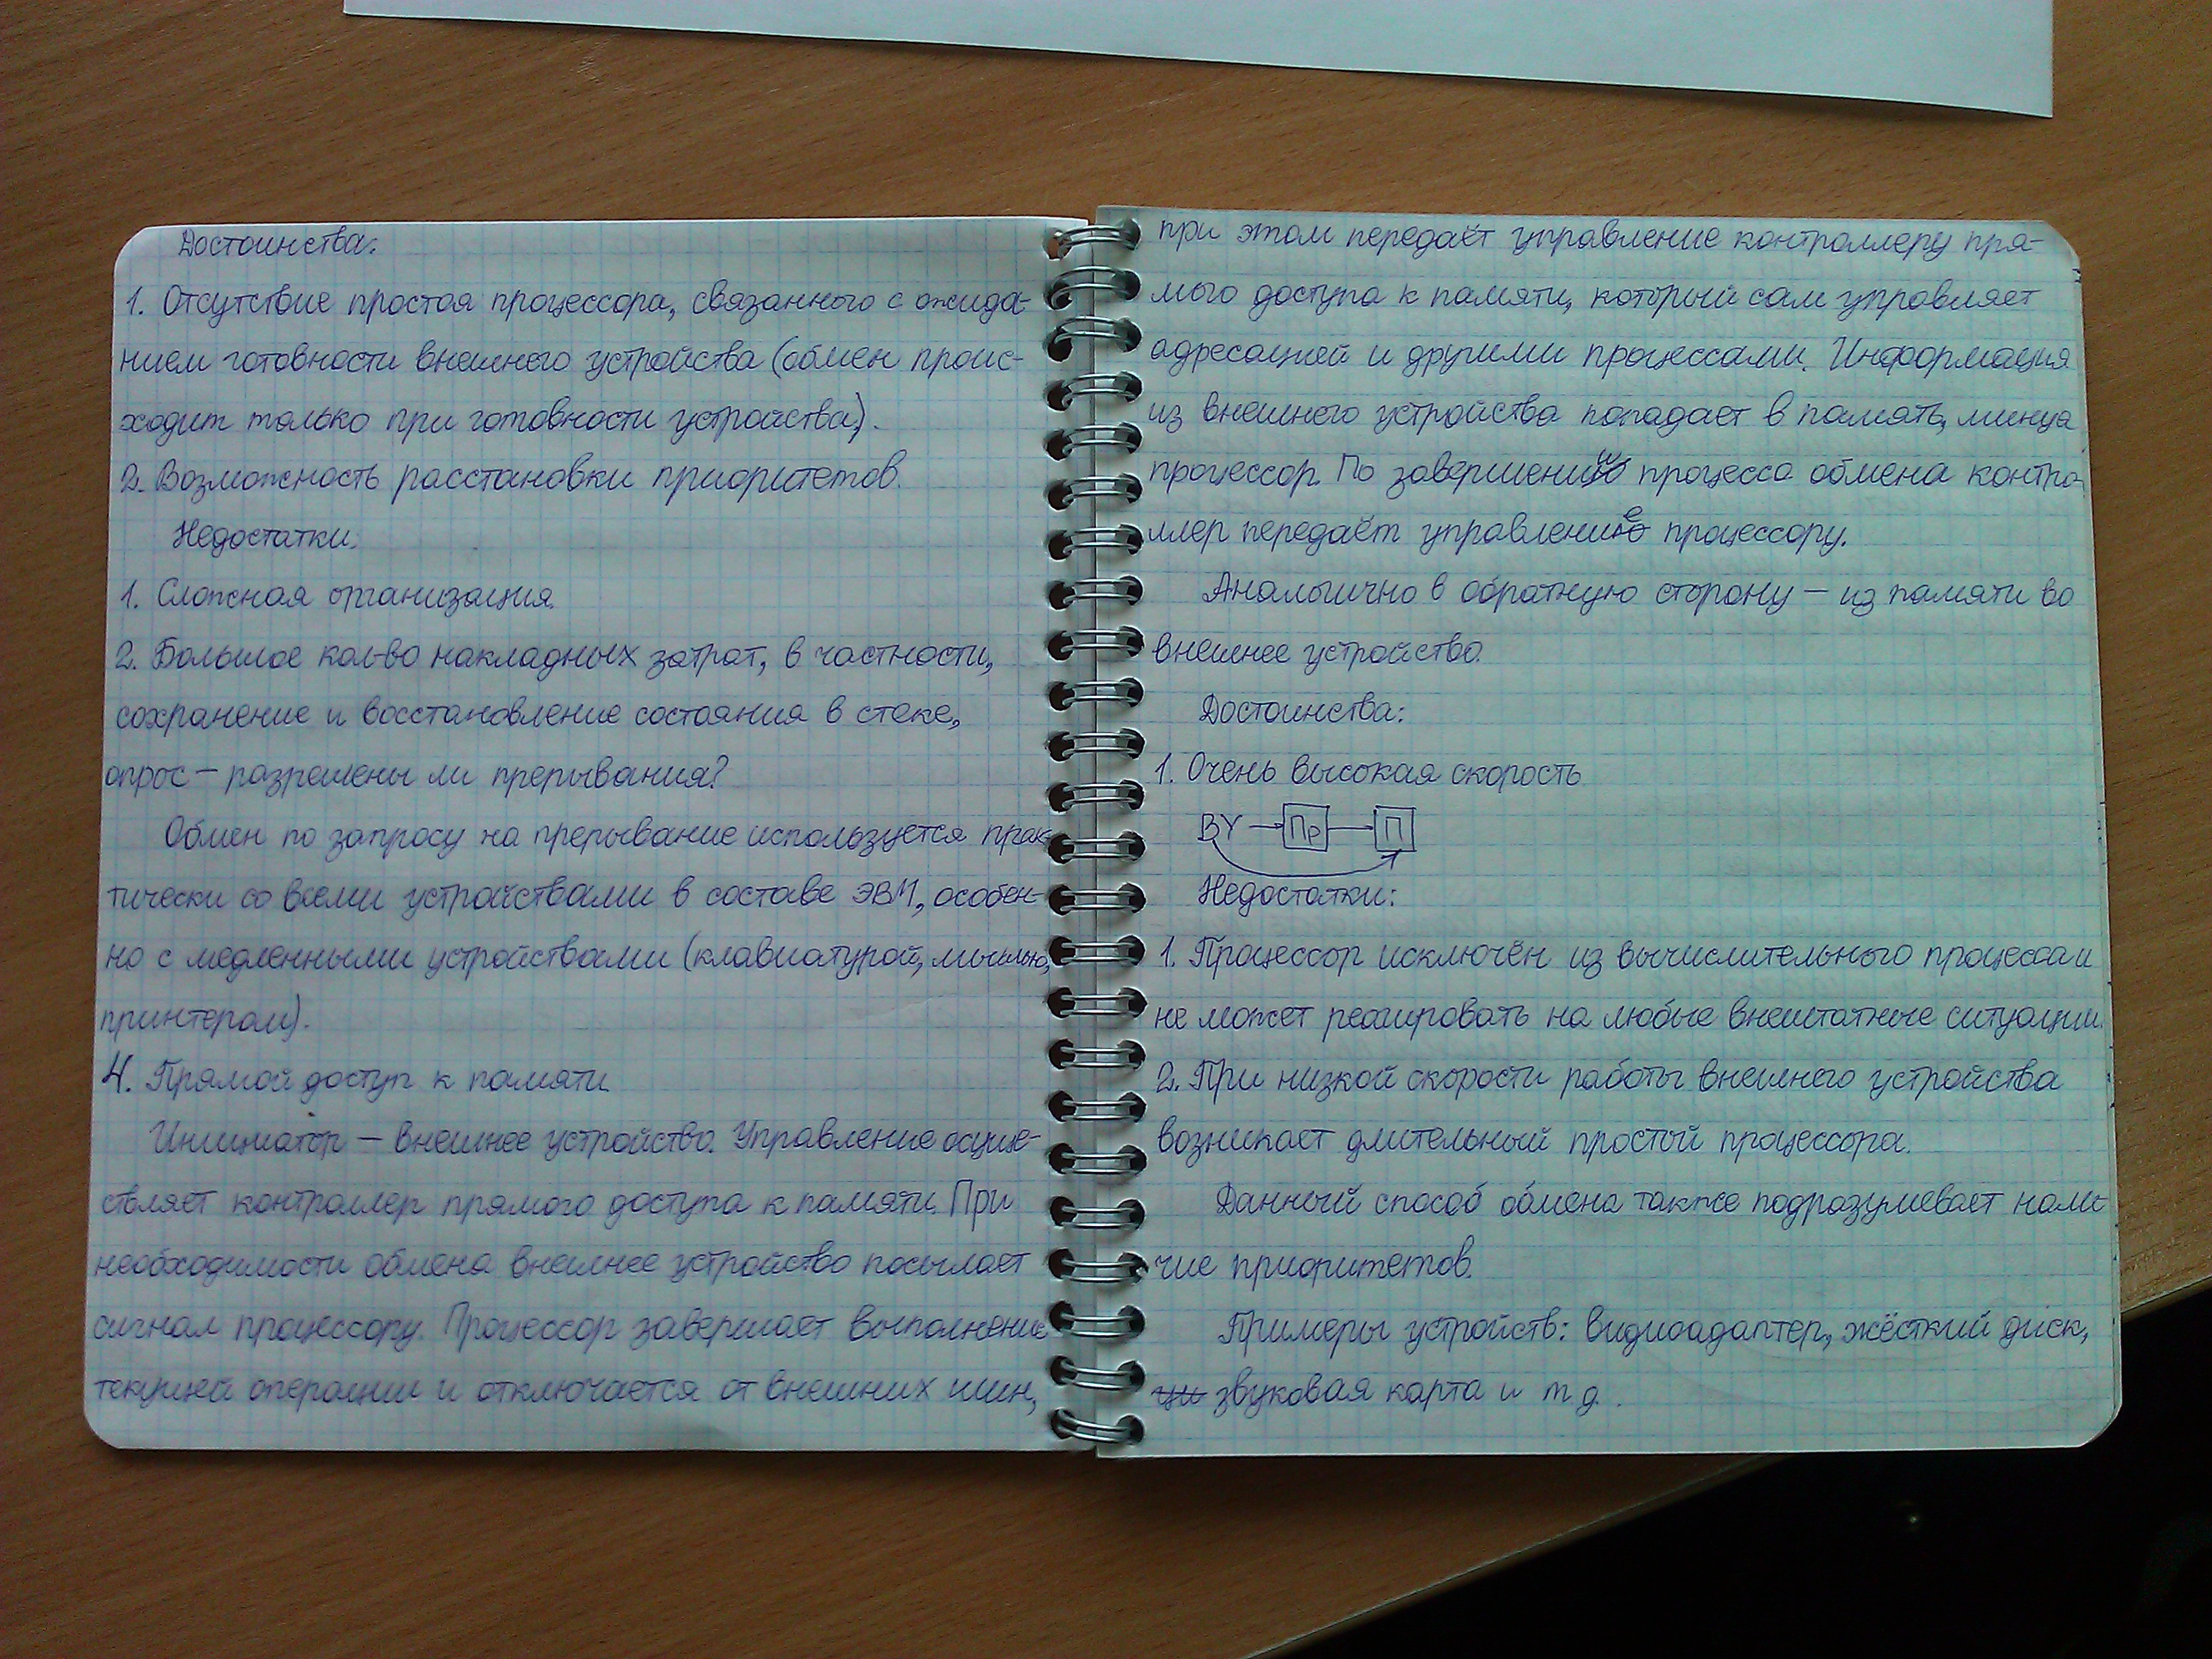 Достоинства:
1. Отсутствие простоя процессора, связанного с ожида-
нием готовности внешнего устройства (обмен проис-
ходит только при готовности устройства).
2. Возможность расстановки приоритетов.
Недостатки:
1. Сложная организация.
2. Большое кол-во накладных затрат, в частности,
сохранение и восстановление состояния в стеке,
опрос – разрешены ли прерывания?
Обмен по запросу на прерывание используется прак-
тически со всеми устройствами в составе ЭВМ, особен-
но с медленными устройствами (клавиатурой, мышью,
принтером).
4. Прямой доступ к памяти.
Инициатор – внешнее устройство. Управление осуще-
ствляет контроллер прямого доступа к памяти. При
необходимости обмена внешнее устройство посылает
сигнал процессору. Процессор завершает выполнение
текущей операции и отключается от внешних шин,
при этом передаёт управление контроллеру пря-
мого доступа к памяти, который сам управляет
адресацией и другими процессами. Информация
из внешнего устройства попадает в память, минуя
процессор. По завершении процесса обмена контро-
ллер передаёт управление процессору.
Аналогично в обратную сторону – из памяти во
внешнее устройство.
Достоинства:
1. Очень высокая скорость
ВУ Пр П
Недостатки:
1. Процессор исключён из вычислительного процесса и
не может реагировать на любые внештатные ситуации.
2. При низкой скорости работы внешнего устройства
возникает длительный простой процессора.
Данный способ обмена также подразумевает нали-
чие приоритетов.
Примеры устройств: видиоадаптер, жёсткий диск,
звуковая карта и т.д.